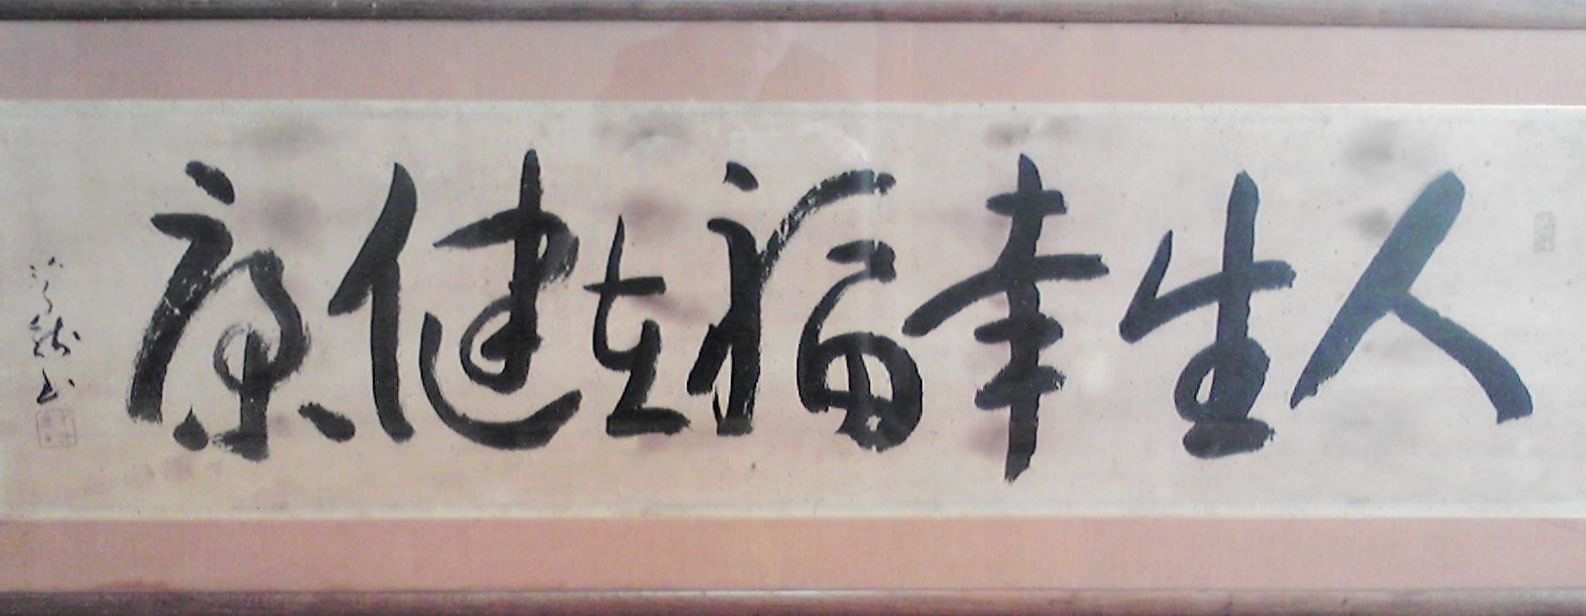 人生幸福在健康